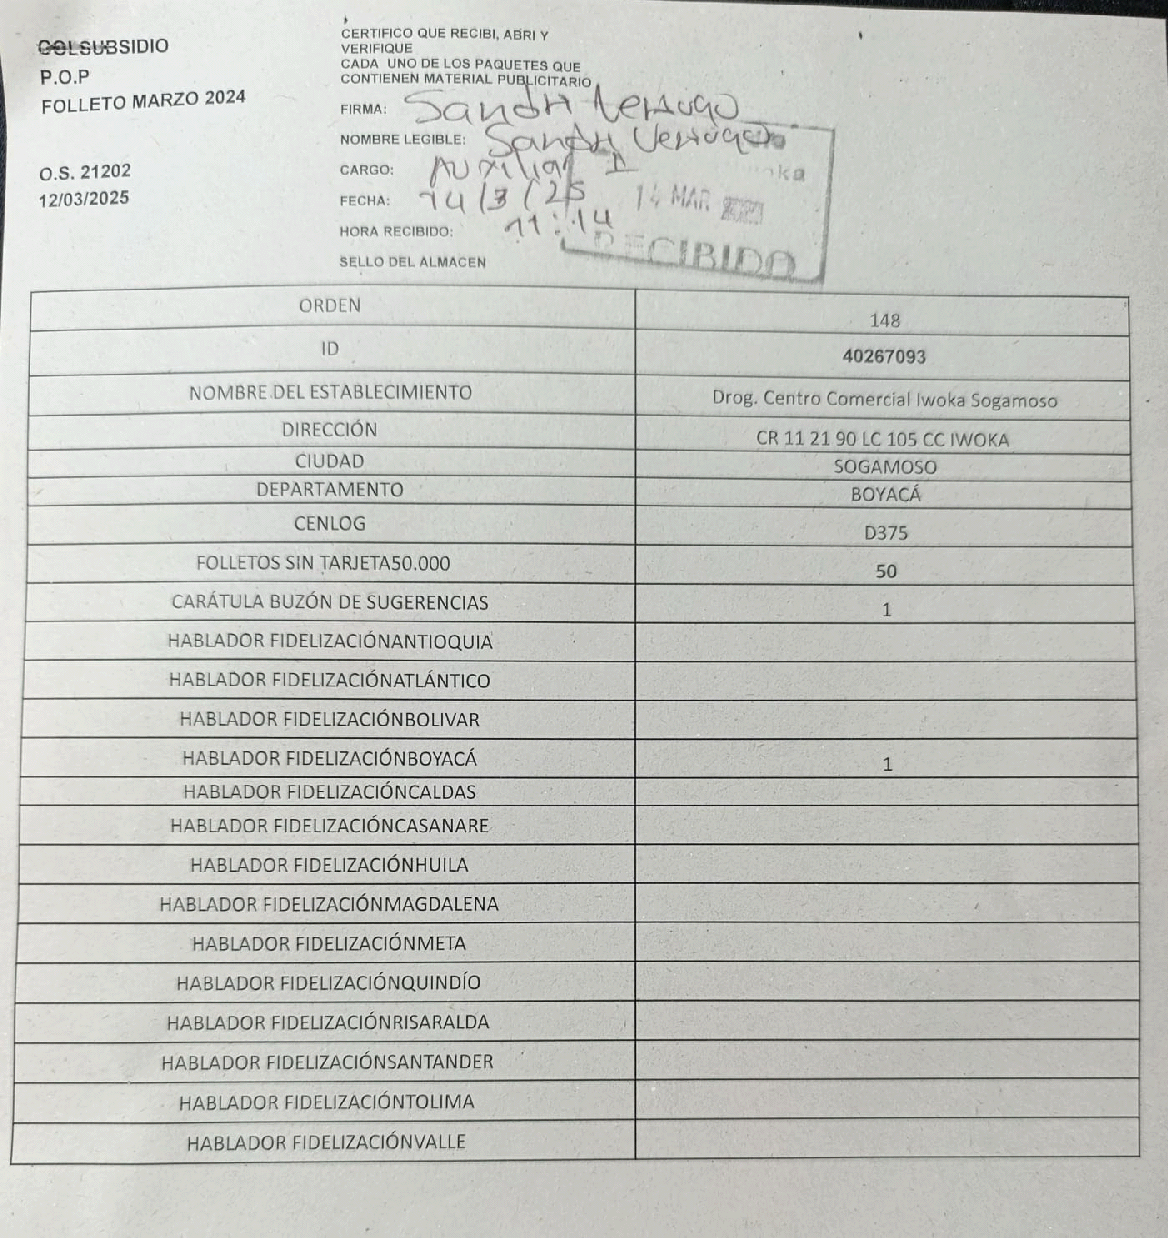 COLSUBSIDIO
P.O.P
FOLLETO MARZO 2024
O.S. 21202
12/03/2025
CERTIFICO QUE RECIBI, ABRI Y
VERIFIQUE
CADA UNO DE LOS PAQUETES QUE
CONTIENEN MATERIAL PUBLICITARIO
FIRMA: Sandra
NOMBRE LEGIBLE: Sandra
CARGO: Auxiliar I
FECHA: 14/3/25
HORA RECIBIDO: 11:14
SELLO DEL ALMACEN
14 MAR
RECIBIDO
ORDEN 148
ID 40267093
NOMBRE DEL ESTABLECIMIENTO Drog. Centro Comercial Iwoka Sogamoso
DIRECCIÓN CR 11 21 90 LC 105 CC IWOKA
CIUDAD SOGAMOSO
DEPARTAMENTO BOYACÁ
CENLOG D375
FOLLETOS SIN TARJETA50.000 50
CARÁTULA BUZÓN DE SUGERENCIAS 1
HABLADOR FIDELIZACIÓNANTIOQUIA
HABLADOR FIDELIZACIÓNATLÁNTICO
HABLADOR FIDELIZACIÓNBOLIVAR
HABLADOR FIDELIZACIÓNBOYACÁ 1
HABLADOR FIDELIZACIÓNCALDAS
HABLADOR FIDELIZACIÓNCASANARE
HABLADOR FIDELIZACIÓNHUILA
HABLADOR FIDELIZACIÓNMAGDALENA
HABLADOR FIDELIZACIÓNMETA
HABLADOR FIDELIZACIÓNQUINDÍO
HABLADOR FIDELIZACIÓNRISARALDA
HABLADOR FIDELIZACIÓNSANTANDER
HABLADOR FIDELIZACIÓNTOLIMA
HABLADOR FIDELIZACIÓNVALLE